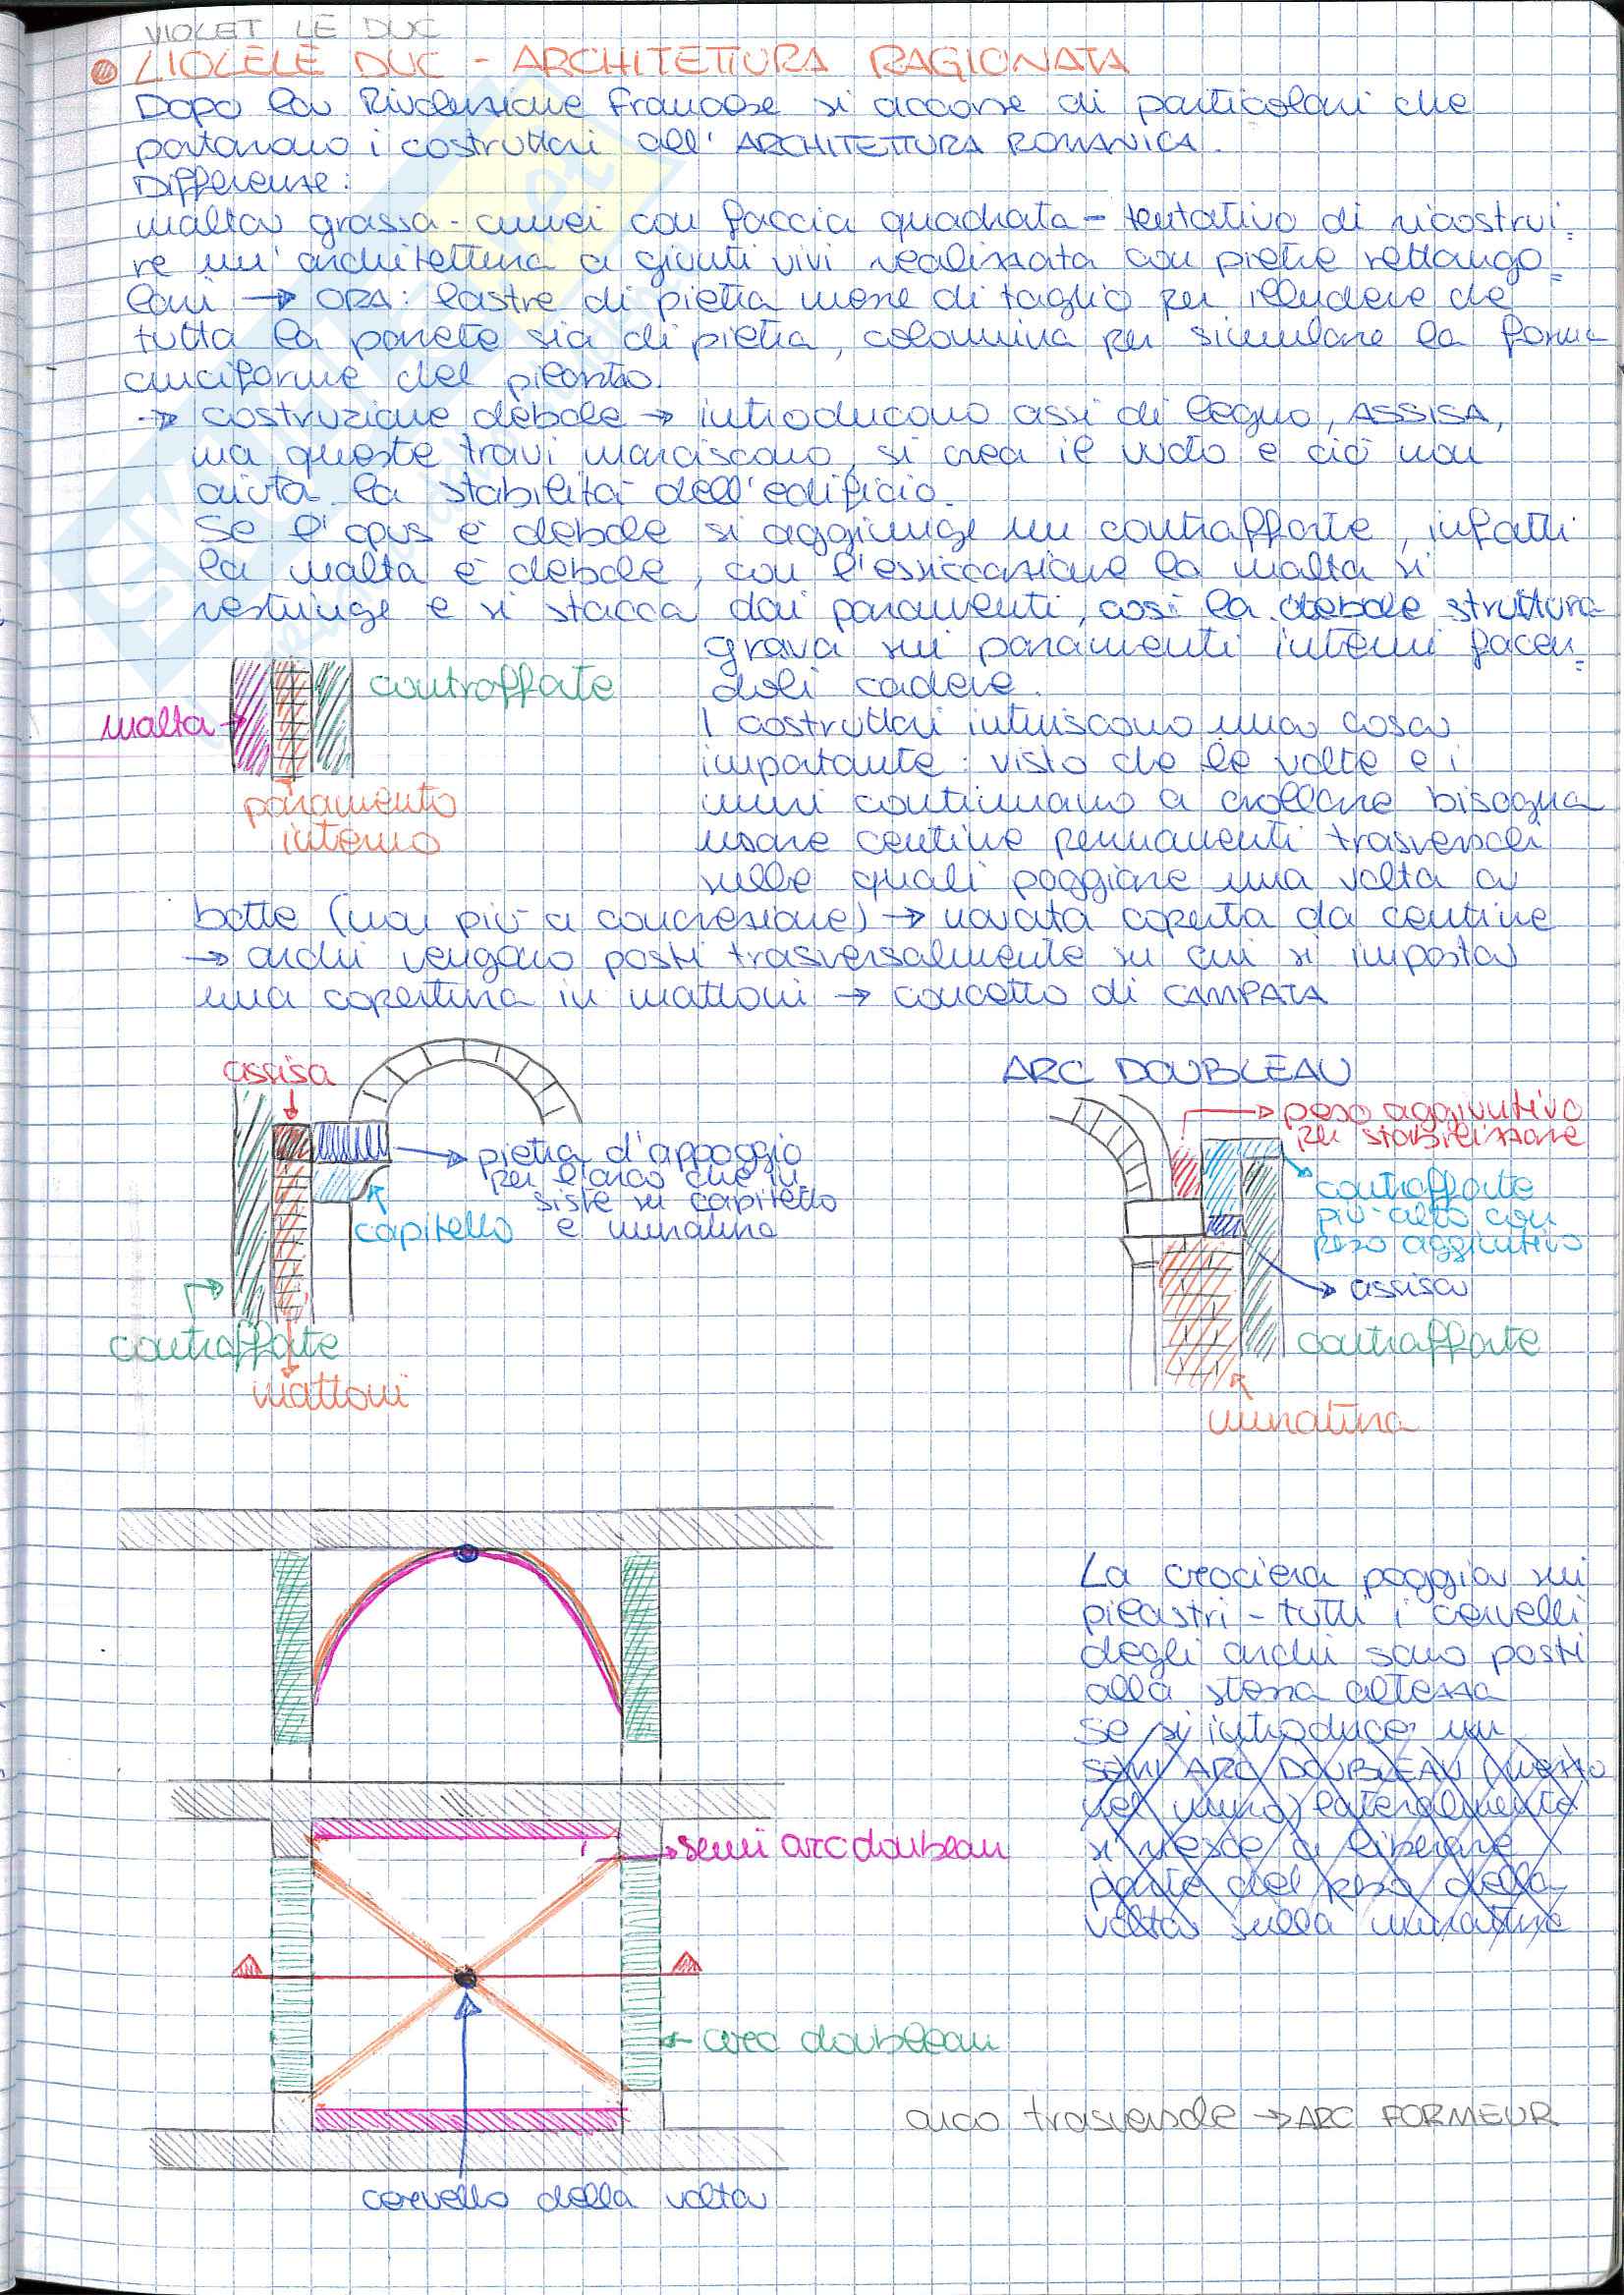 VIOLET LE DUC
LIOLELE DUC - ARCHITETTURA RAGIONATA
Dopo la Rivoluzione francese si accorse di particolari che
portarono i costruttori all'ARCHITETTURA ROMANICA.
Differenze:
malta grassa - cunei con faccia quadrata - tentativo di ricostrui
re un'architettura a giunti vivi realizzata con pietre rettango
lari → ORA: lastre di pietra messe di taglio per illudere che
tutta la parete sia di pietra, colonnina per simulare la forma
cruciforme del pilastro.
→ costruzione debole → introducono assi di legno, ASSISA,
ma queste travi marciscono, si crea il vuoto e ciò non
aiuta la stabilità dell'edificio.
Se l'opus è debole si aggiunge un contrafforte, infatti
la malta è debole, con l'essiccazione la malta si
restringe e si stacca dai paramenti, così la debole struttura
grava sui paramenti interni facen
doli cadere.
I costruttori intuiscono una cosa
importante: visto che le volte e i
muri continuano a crollare bisogna
usare centine permanenti trasversali
sulle quali poggiare una volta a
botte (non più a concrezione) → navata coperta da centine
→ archi vengono posti trasversalmente su cui si imposta
una copertura in mattoni → concetto di CAMPATA
contrafforte
malta →
paramento
interno
assisa
pietra d'appoggio
per l'arco che in
siste su capitello
e muratura
capitello
contrafforte
mattoni
ARC DOUBLEAU
peso aggiuntivo
per stabilizzare
contrafforte
più alto con
peso aggiuntivo
assisa
contrafforte
muratura
La crociera poggia sui
pilastri - tutti i cervelli
degli archi sono posti
alla stessa altezza
Se si introduce un
SEMI ARC DOUBLEAU (messo
nel muro) lateralmente
si riesce a liberare
parte del peso della
volta sulla muratura
semi arc doubleau
arc doubleau
arco trasversale → ARC FORMEUR
cervello della volta